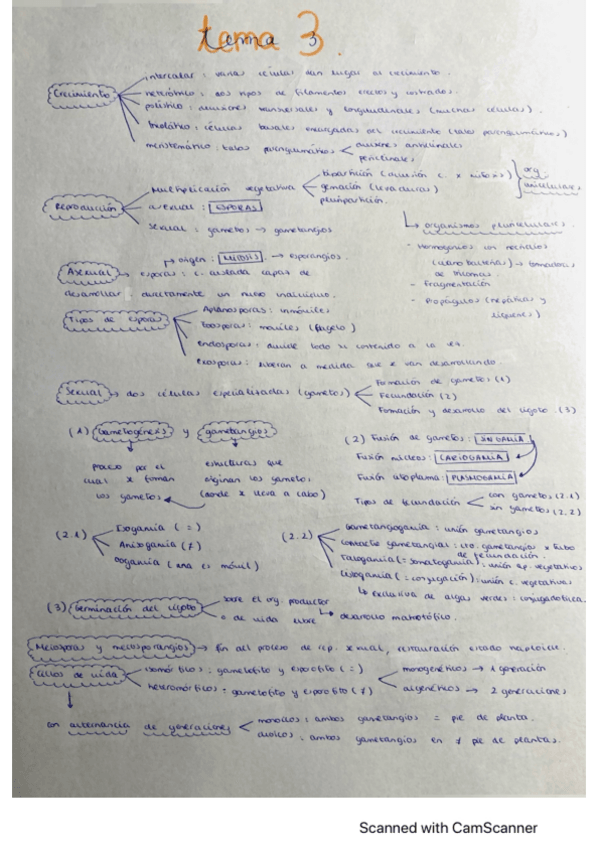 tema 3.
Crecimiento
intercalar : varias células dan lugar al crecimiento.
heterótrico : dos tipos de filamentos erectos y postrados.
polístico : divisiones transversales y longitudinales (muchas células).
células basales encargadas del crecimiento (talos parenquimáticos)
meristemático : talos parenquimáticos < divisiones anticlinales
periclinales
Reproducción
Multiplicación vegetativa
bipartición (división c. x mitosis)
gemación (levaduras)
pluripartición.
org. unicelulares
asexual : ESPORAS
sexual : gametos → gametangios
organismos pluricelulares.
- Hormogonios un necridios
(cianobacterias) → formadoras
de tricomas.
- Fragmentación
- Propágulos (hepáticas y
líquenes)
origen : MITOSIS → esporangios.
Asexual → esporas : c. aislada capaz de
desarrollar directamente un nuevo individuo.
Tipos de esporas
Aplanosporas : inmóviles
Zoosporas : móviles (flagelo)
endosporas : divide todo su contenido a la vez.
exosporas : liberan a medida que se van desarrollando.
Sexual → dos células especializadas (gametos)
Formación de gametos (1)
Fecundación (2)
Formación y desarrollo del cigoto. (3)
(1) Gametogénesis y gametangios
proceso por el
cual se forman
los gametos
estructuras que
originan los gametos
(donde se lleva a cabo)
(2) Fusión de gametos : SINGAMIA
Fusión núcleos : CARIOGAMIA
Fusión citoplasma : PLASMOGAMIA
Tipos de fecundación < con gametos (2.1)
sin gametos (2.2)
(2.1)
Isogamia (=)
Anisogamia (≠)
Oogamia (una es móvil)
(2.2)
Gametangiogamia : unión gametangios
contacto gametangial : cto. gametangios x tubo
de fecundación.
(= somatogamia) : unión sp. vegetativas
(= conjugación) : unión c. vegetativas
↳ exclusiva de algas verdes : conjugadofíceas
(3) Germinación del cigoto
sobre el org. productor
o de vida libre
→ desarrollo matrotrófico.
Meiosporas y meiosporangios → Fin del proceso de rep. sexual, restauración estado haploide.
Ciclos de vida
isomórficos : gametofito y esporofito (=)
heteromórficos = gametofito y esporofito (≠)
monogenéticos → 1 generación
digenéticos → 2 generaciones
con alternancia de generaciones
monoicos : ambos gametangios = pie de planta.
dioicos : ambos gametangios en ≠ pie de plantas.
Scanned with CamScanner